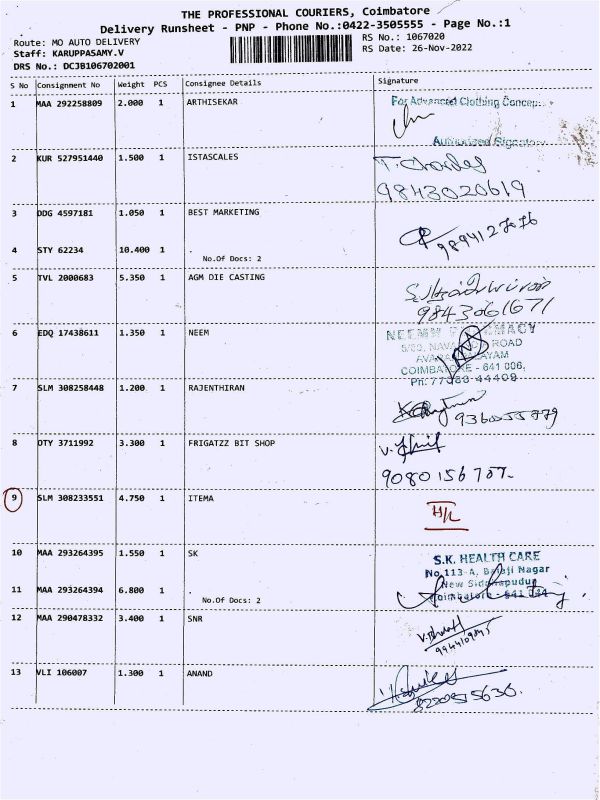 THE PROFESSIONAL COURIERS, Coimbatore
Delivery Runsheet - PNP - Phone No.:0422-3505555 - Page No.:1
Route: MO AUTO DELIVERY
RS No.: 1067020
Staff: KARUPPASAMY.V
RS Date: 26-Nov-2022
DRS No.: DCJB106702001
S No Consignment No Weight PCS Consignee Details Signature
1 MAA 292258809 2.000 1 ARTHISEKAR
For Advanced Clothing Concep..
Authorized Signatory
2 KUR 527951440 1.500 1 ISTASCALES
9843020619
3 DDG 4597181 1.050 1 BEST MARKETING
4 STY 62234 10.400 1 .
No.Of Docs: 2
5 TVL 2000683 5.350 1 AGM DIE CASTING
9843061671
6 EDQ 17438611 1.350 1 NEEM
NEEMW PHARMACY
ROAD
COIMBATORE - 641 006,
Ph: 77080 44409
7 SLM 308258448 1.200 1 RAJENTHIRAN
8 OTY 3711992 3.300 1 FRIGATZZ BIT SHOP
9 SLM 308233551 4.750 1 ITEMA
10 MAA 293264395 1.550 1 SK
S.K. HEALTH CARE
No.113-A, Balaji Nagar
New Siddhapudur
Coimbatore - 641 044
11 MAA 293264394 6.800 1 .
No.Of Docs: 2
12 MAA 290478332 3.400 1 SNR
V.Bharath
13 VLI 106007 1.300 1 ANAND